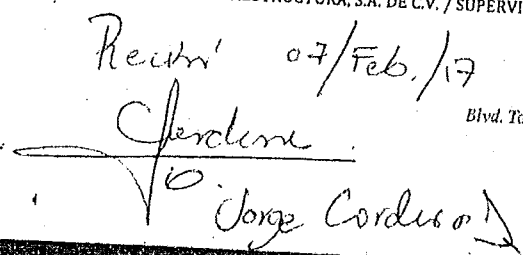 ESTRUCTURA, S.A. DE C.V. / SUPERVI
Recibí 07/Feb./17
Blvd. To
Jorge Cordero